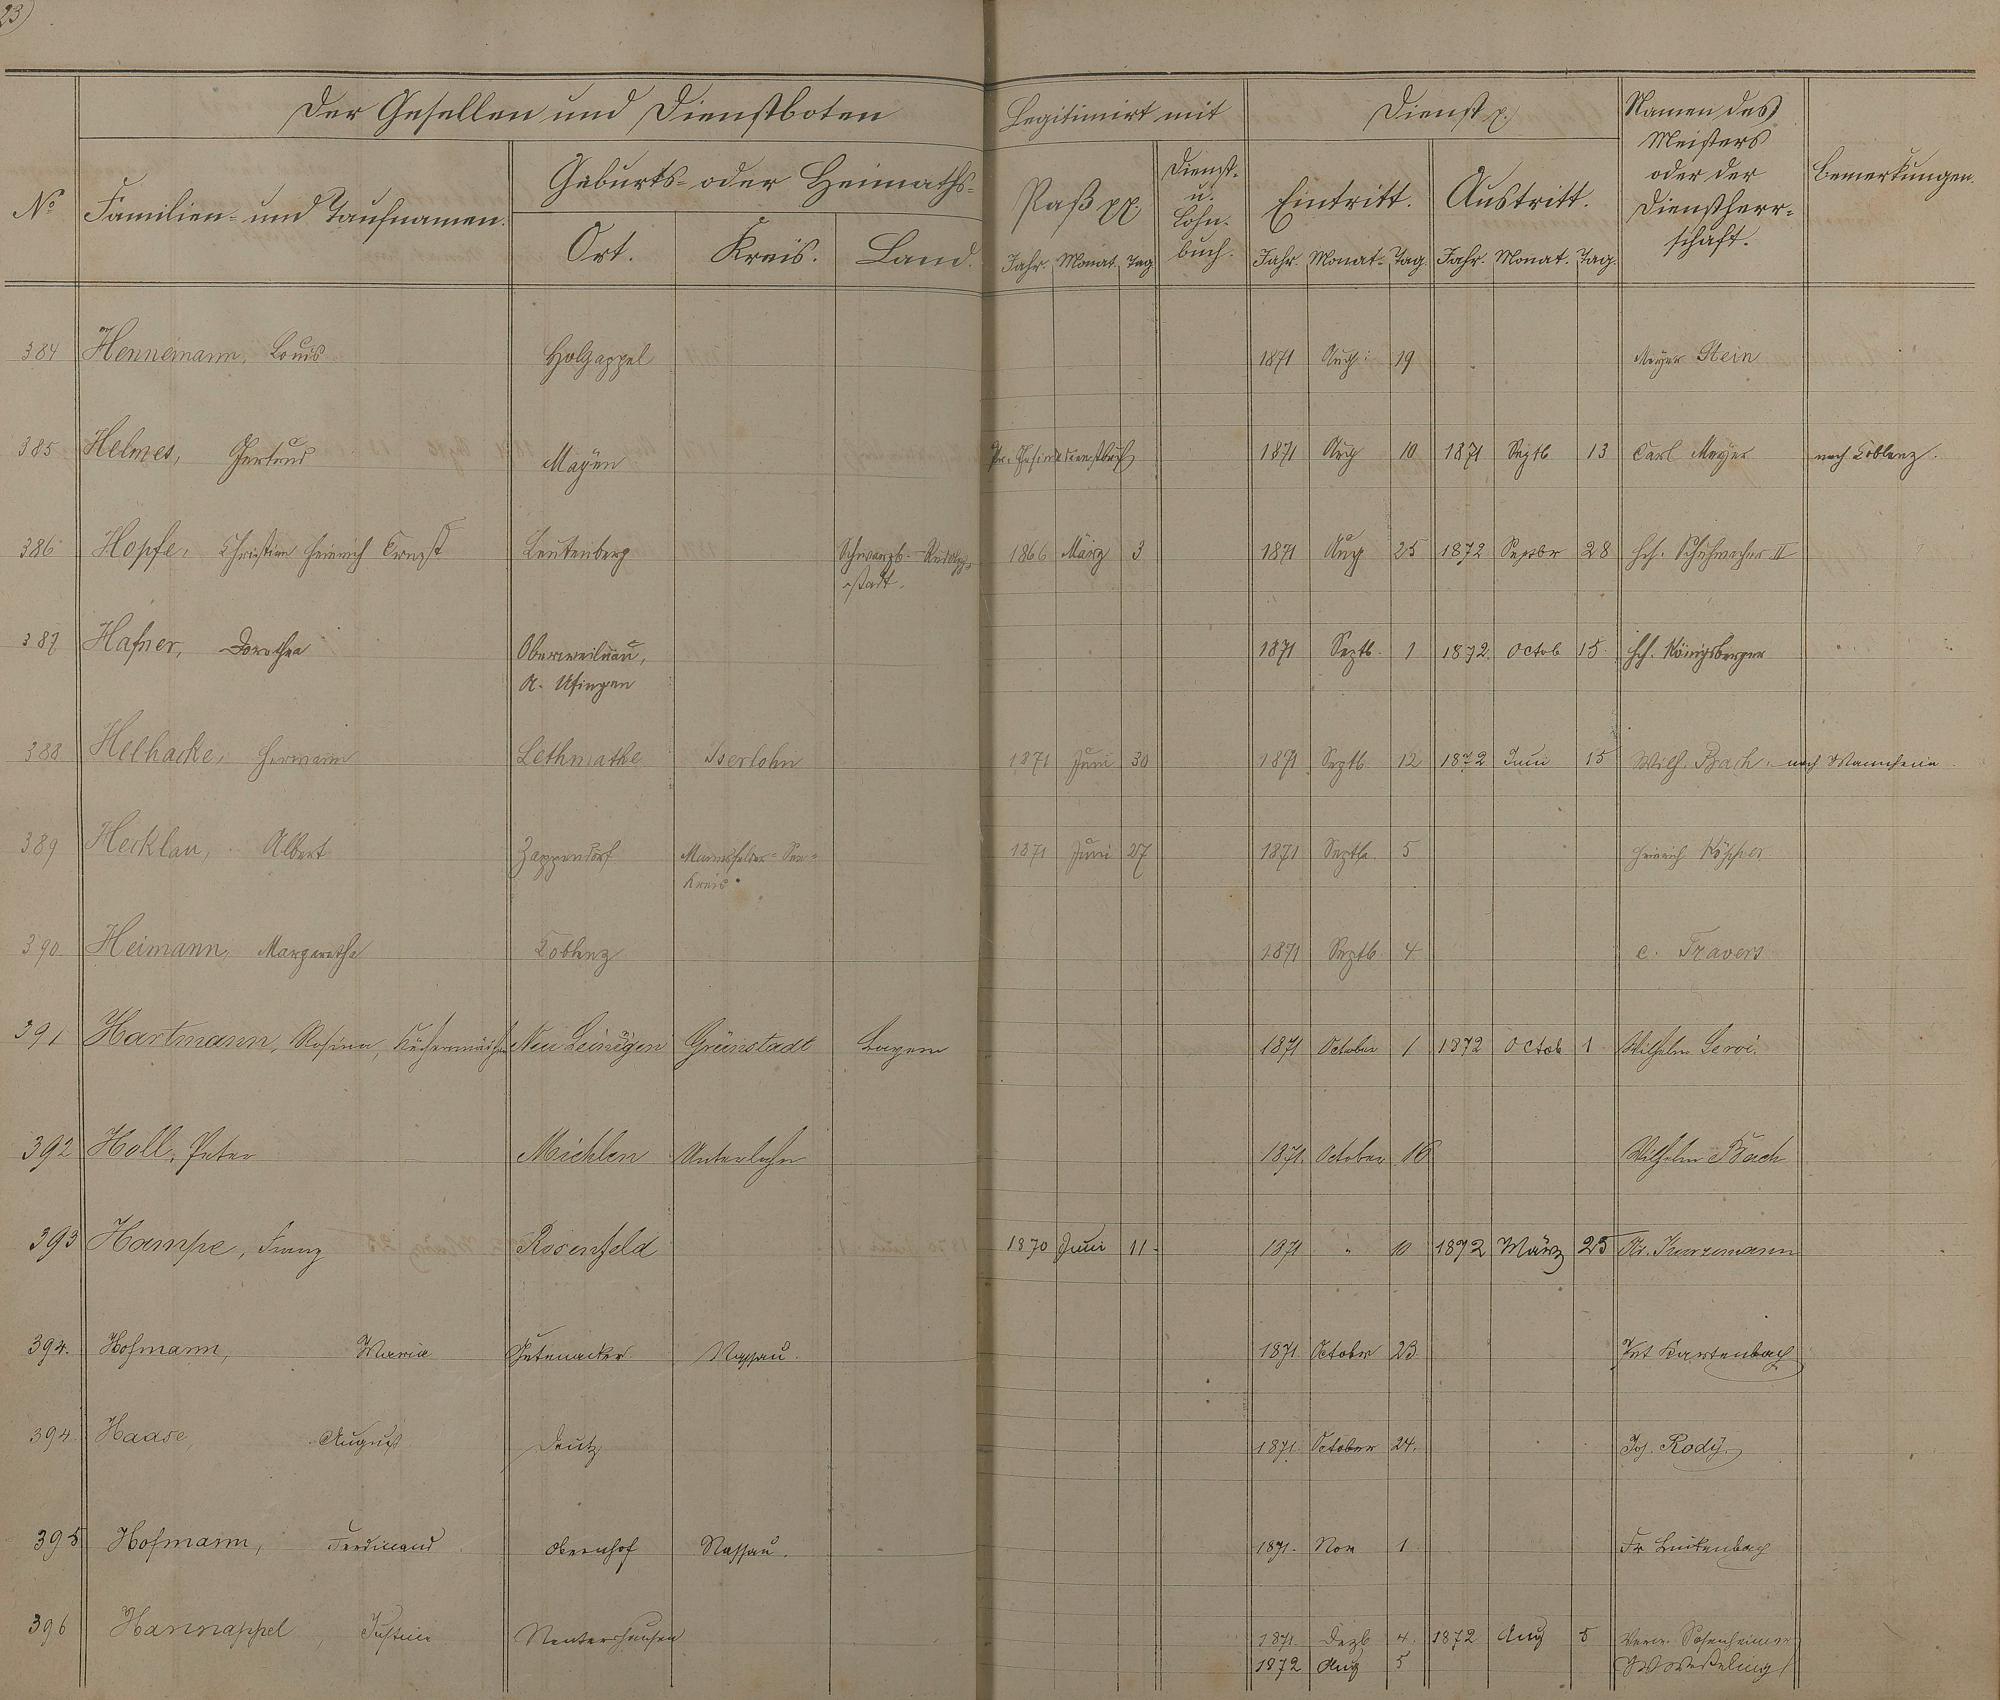 23)
Der Gesellen und Dienstboten
Legitimirt mit
Dienst p.
Namen des
Meisters
oder der
Dienstherr-
schaft.
Bemerkungen.
No
Familien- und Taufnamen.
Geburts- oder Heimaths-
Ort. Kreis. Land.
Paß pp.
Dienst-
u.
Lohn-
buch.
Eintritt. Austritt.
Jahr. Monat. Tag Jahr. Monat. Tag Jahr. Monat. Tag.
384 Hennemann, Louis Holzappel 1871 Aug: 19 Meyer Stein
385 Helmes, Gertrud Mayen Pr. Gesindedienstbuch 1871 Aug 10 1871 Septb 13 Carl Meyer nach Coblenz.
386 Hopfe, Christian Heinrich Ernst Leutenberg Schwarzb.-Rudolf-
stadt. 1866 März 3 1871 Aug 25 1872 Septbr 28 Hch. Schuhmacher II
387 Hafner, Dorothea Oberweilnau,
A. Usingen 1871 Septb. 1 1872 Octob 15. Hch. Königsberger
388 Helhacke, Hermann Lethmathe Iserlohn 1871 Juni 30 1871 Septb 12 1872 Juni 15 Wilh. Bach. nach Mannheim.
389 Hecklau, Albert Zappendorf Mannsfelder-See-
Kreis. 1871 Juni 27 1871 Septb. 5 Heinrich
390. Heimann, Margaretha Coblenz 1871 Septb 4 C. Travers
391 Hartmann, Rosina, Neu Leinigen Grünstadt Bayern 1871 October 1 1872 Octob 1 Wilhelm
392 Holl, Peter Miehlen Unterlahn 1871. October 16 Wilhelm Bach
393 Hampe, Franz Rosenfeld 1870 Juni 11. 1871 " 10 1872 März 25 Kurzemann
394. Hofmann, Maria Gutenacker Nassau. 1871 October 23. Kartenbach
394. Haase, August Deutz 1871. October 24. Jos. Rody.
395 Hofmann, Ferdinand Obernhof Nassau. 1871. Nov 1 Fr
396 Hannappel, Justine Nentershausen 1871. Dezb. 4. 1872 Aug 5 Sosenheimer
1872 Aug 5 W Weßeling